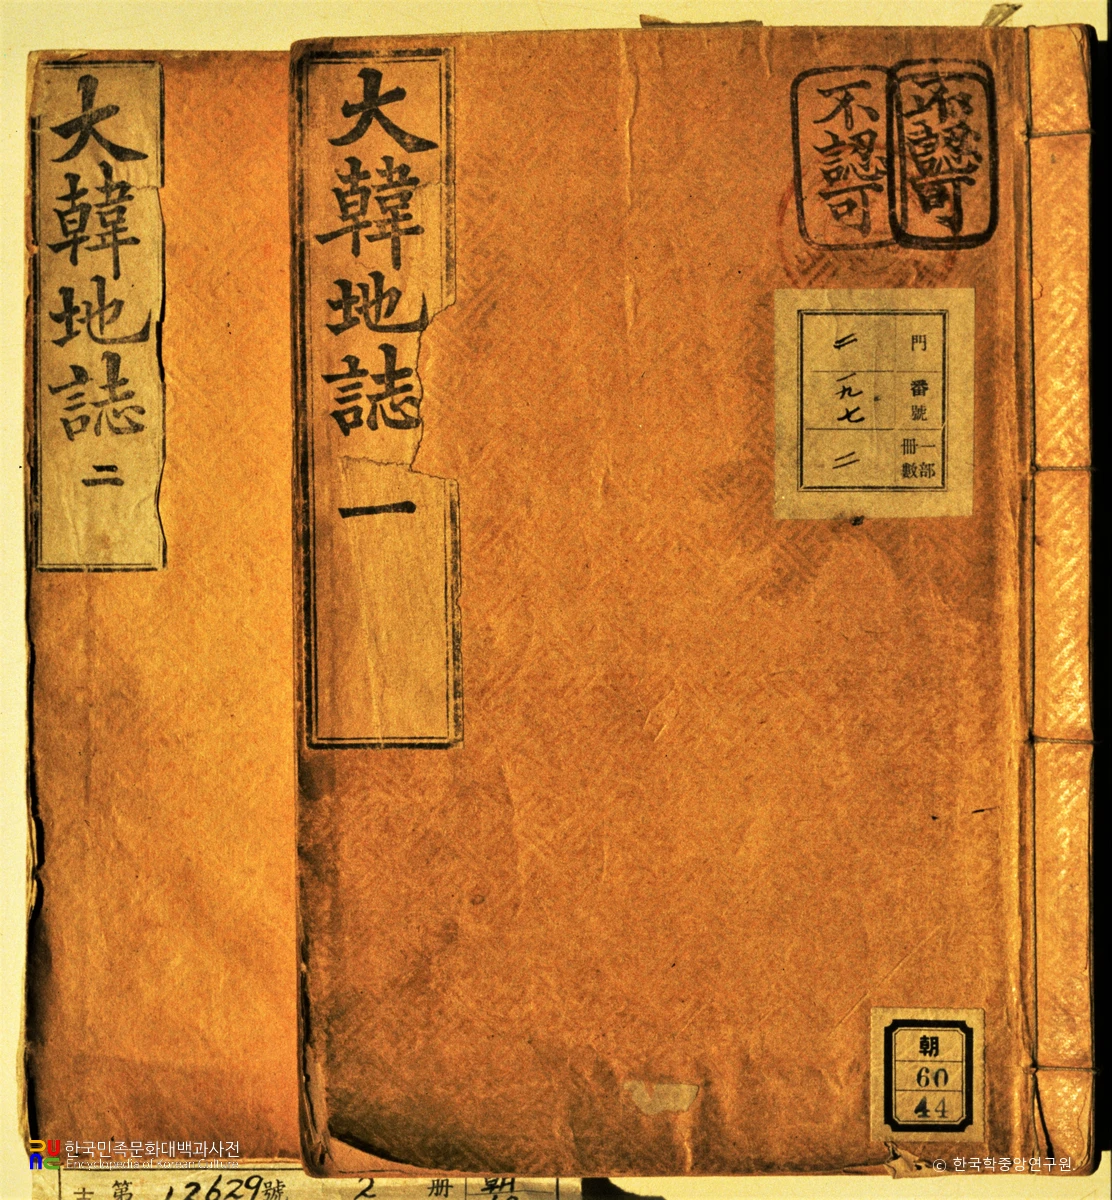 大韓地誌 一
大韓地誌 二
不認可
不認可
門 二
番號 一九七
一部冊數 二
朝
60
44
한국민족문화대백과사전
Encyclopedia of Korean Culture
© 한국학중앙연구원
第 12629號 2 册 朝